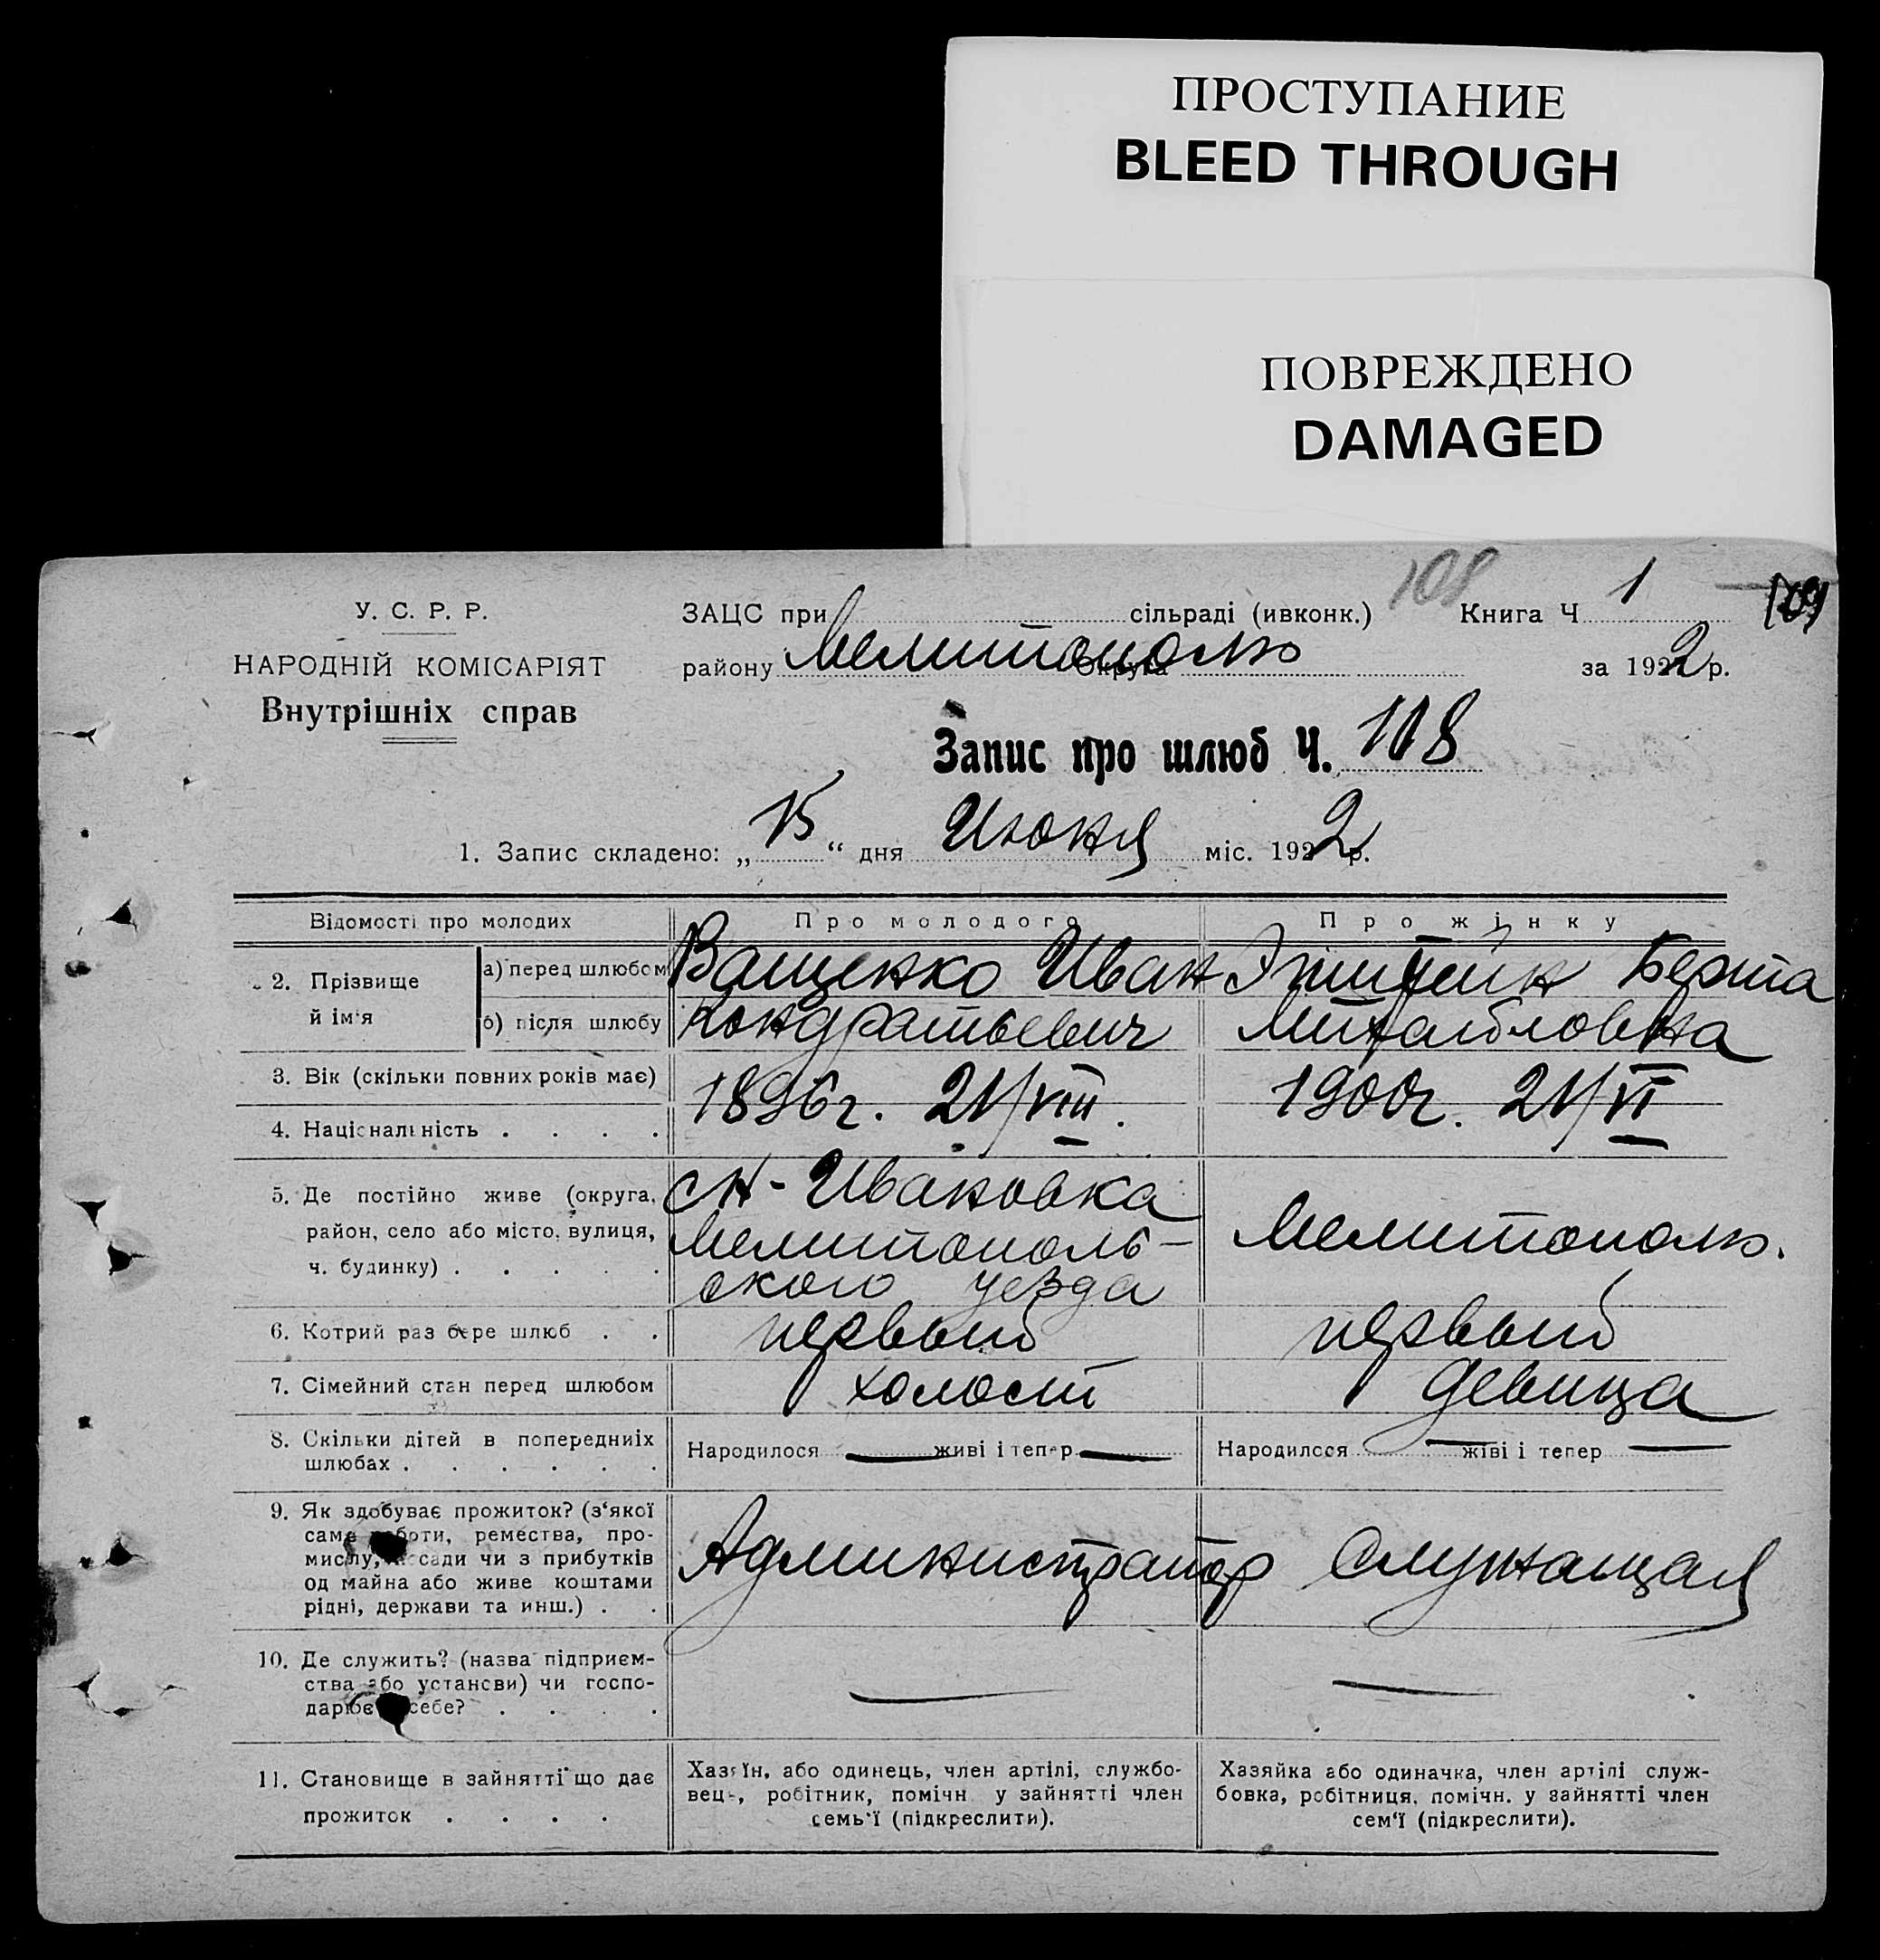 ПРОСТУПАНИЕ
BLEED THROUGH
ПОВРЕЖДЕНО
DAMAGED
108
109
У. С. Р. Р.
НАРОДНІЙ КОМІСАРІЯТ
Внутрішніх справ
ЗАЦС при сільраді (ивконк.) Книга Ч 1
району Мелитополь Округа за 1922 р.
Запис про шлюб Ч. 108
1. Запис складено: „15“ дня Июня міс. 1922 р.
Відомості про молодих Про молодого Про жінку
2. Прізвище й ім'я
а) перед шлюбом Ващенко Иван Берта
б) після шлюбу Кондратьевич
3. Вік (скільки повних років має) 1896 г. 21/VIII. 1900 г. 21/VI
4. Національність . . . .
5. Де постійно живе (округа, район, село або місто, вулиця, ч. будинку) . . . . .
Ивановка
Мелитополь-
ского уезда
Мелитополь.
6. Котрий раз бере шлюб . . первый первый
7. Сімейний стан перед шлюбом холост девица
8. Скільки дітей в попередниіх шлюбах . . . . . .
Народилося — живі і тепер — Народилося — живі і тепер —
9. Як здобуває прожиток? (з'якої
саме роботи, ремества, про-
мислу, посади чи з прибутків
од майна або живе коштами
рідні, держави та инш.) . .
Администратор Служащая
10. Де служить? (назва підприєм-
ства або установи) чи госпо-
дарює себе? . . . .
— —
11. Становище в зайнятті що дає
прожиток . . . .
Хазяїн, або одинець, член артілі, службо-
вець, робітник, помічн у зайнятті член
семь'ї (підкреслити).
Хазяйка або одиначка, член артілі служ-
бовка, робітниця, помічн. у зайнятті член
сем'ї (підкреслити).